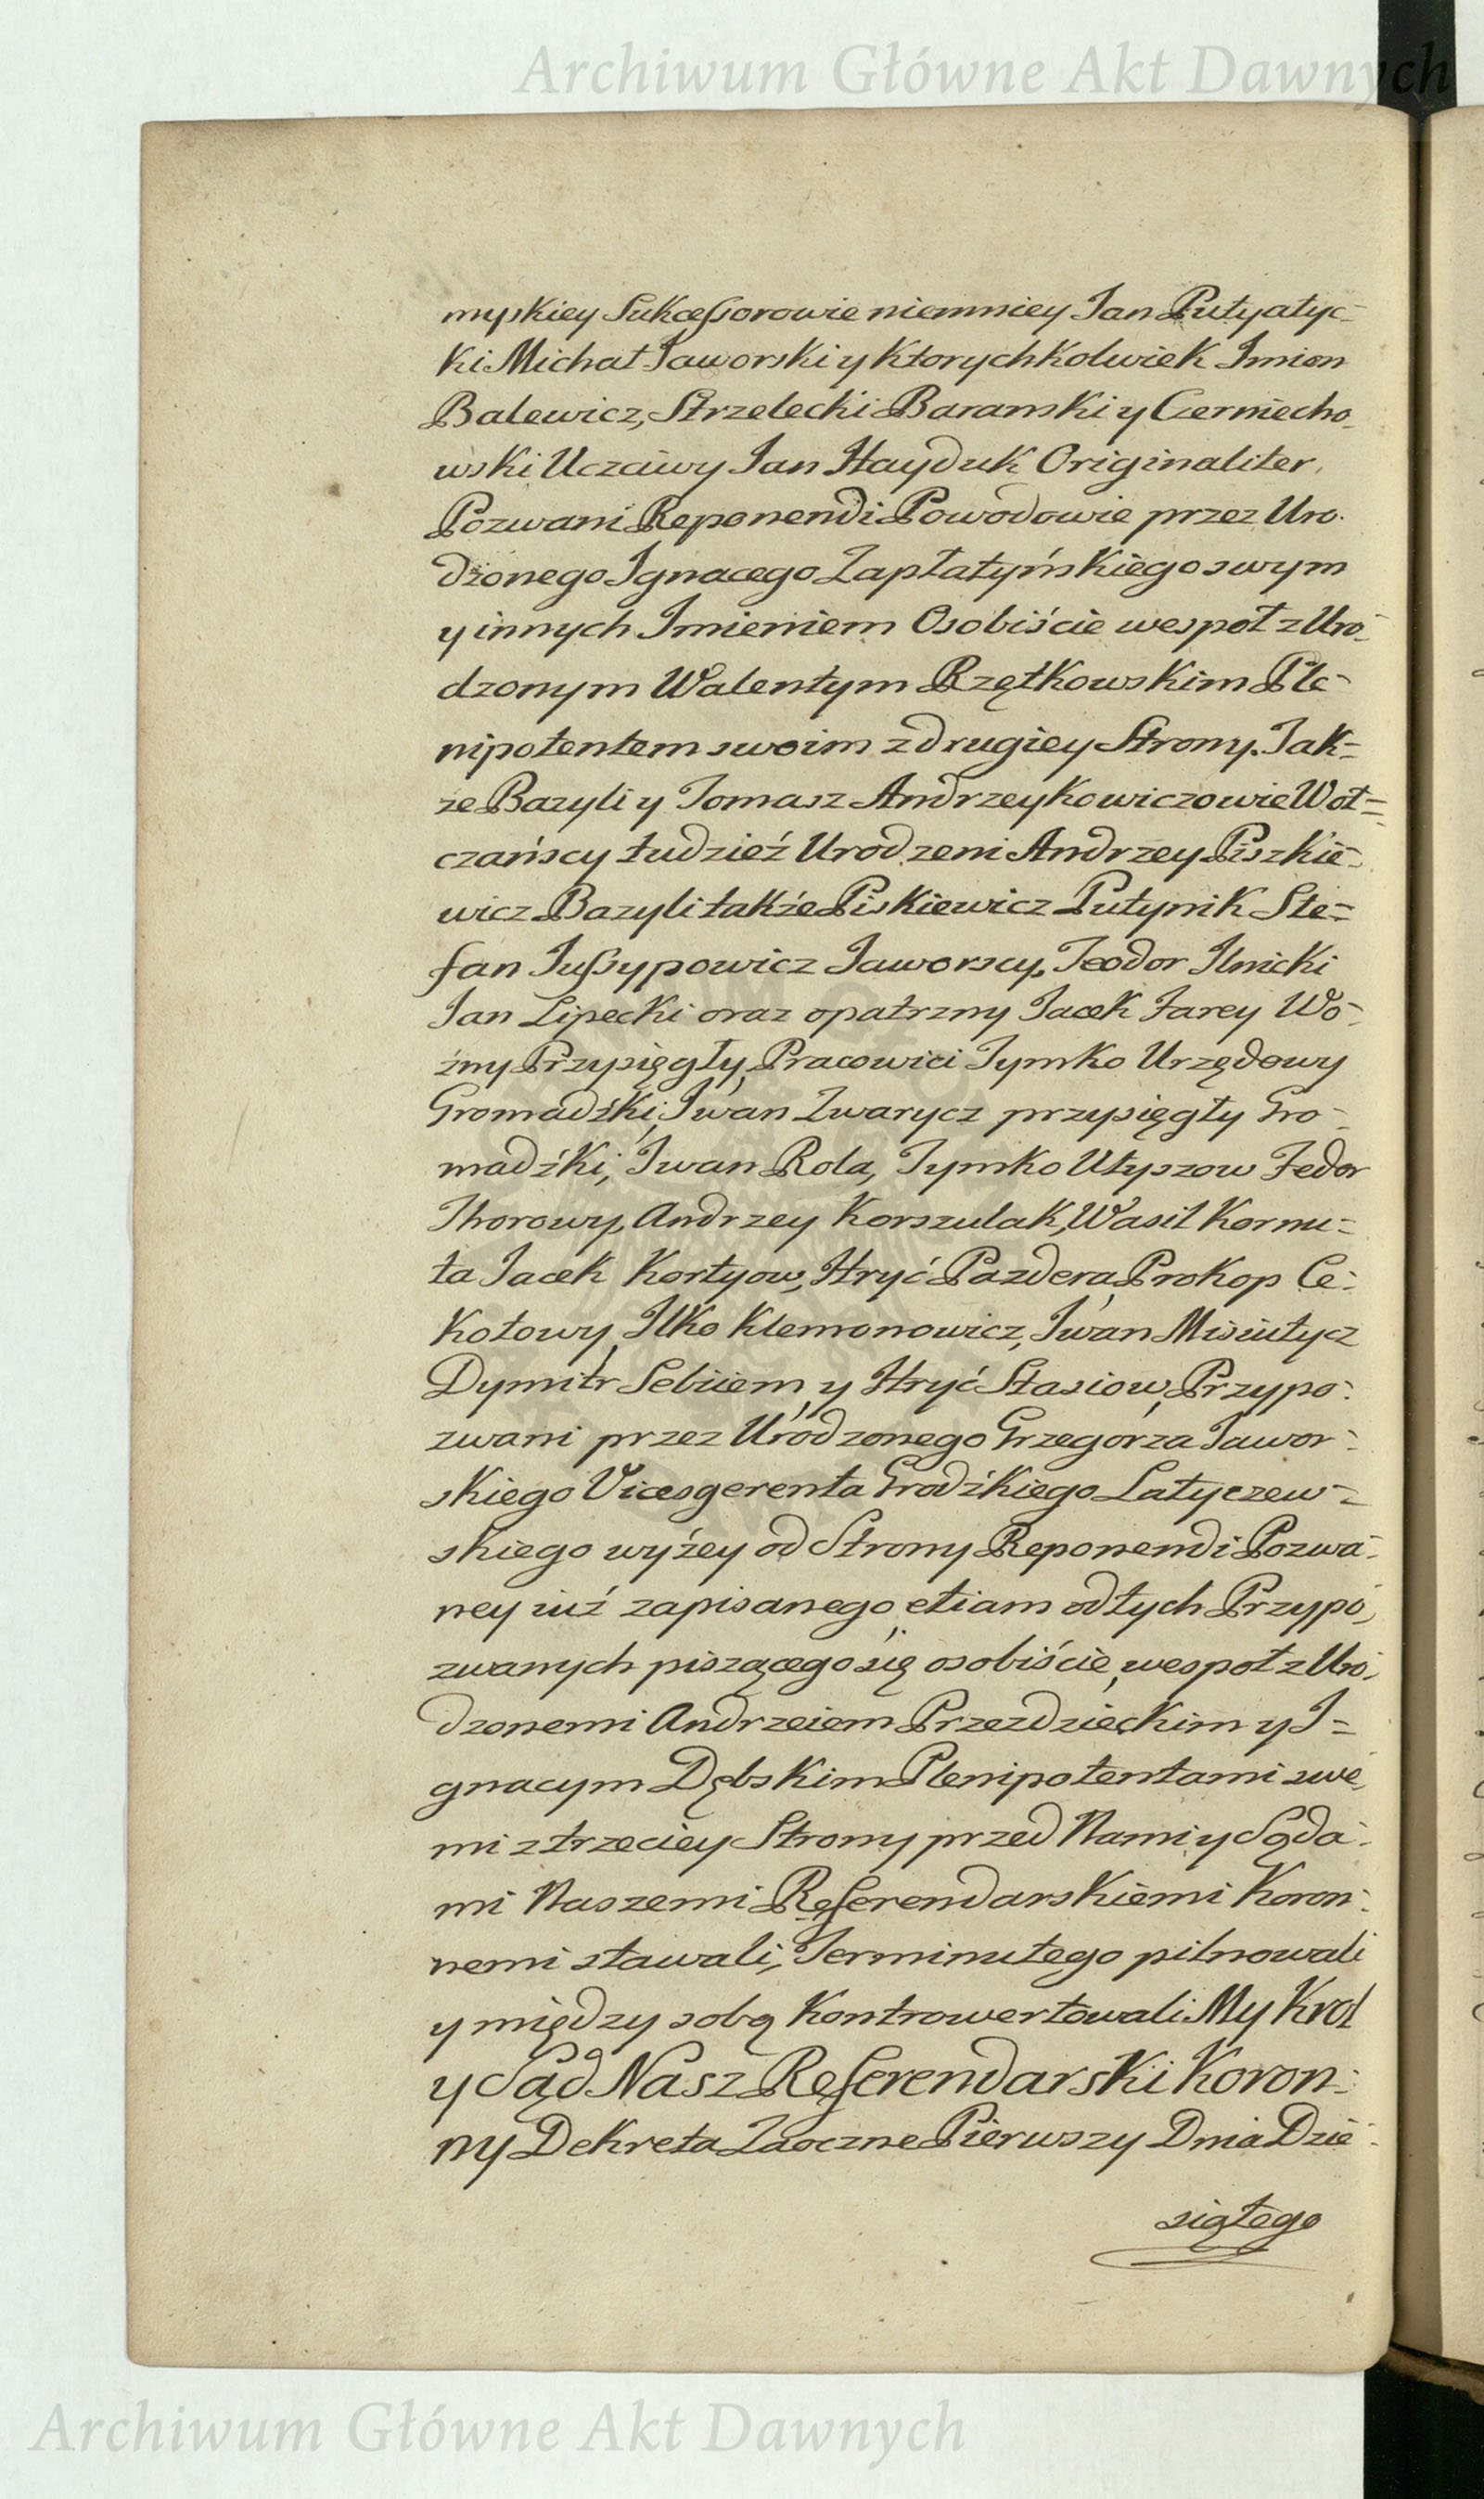 Archiwum Główne Akt Dawnych
myskiey Sukcessorowie niemniey Jan Putyatyc-
ki Michał Jaworski y Ktorychkolwiek Imion
Balewicz, Strzelecki Baranski y Czerniecho-
wski Uczciwy Jan Hayduk Originaliter
Pozwani Reponendi Powodowie przez Uro-
dzonego Ignacego Zapłatyńskiego swym
y innych Imieniem Osobiście wespoł z Uro-
dzonym Walentym Rzętkowskim Ple-
nipotentem swoim z drugiey Strony. Jak-
że Bazyli y Tomasz Andrzeykowiczowie Woł=
czańscy tudzież Urodzeni Andrzey Piszkie-
wicz Bazyli także Piskiewicz Putynik Ste=
fan Jussypowicz Jaworscy, Teodor Ilnicki
Jan Lipecki oraz opatrzny Jacek Farey Wo-
źny Przysięgły, Pracowici Tymko Urzędowy
Gromadźki, Iwan Zwarycz przysięgły Gro-
madźki, Iwan Rola, Tymko Utyszow Fedor
Ihorowy, Andrzey Korszulak, Wasil Kornu=
ta Jacek Kortyow, Hryć Pazdera, Prokop Ce-
Kotowy, Ilko Klemonowicz, Iwan Misiutycz
Dymitr Sebiiem, y Hryć Stasiow, Przypo-
zwani przez Urodzonego Grzegorza Jawor-
skiego Vicesgerenta Grodźkiego Latyczew-
skiego wyżey od Strony Reponendi Pozwa-
ney iuż zapisanego, etiam od tych Przypo-
zwanych piszącego się osobiście, wespoł z Uro-
dzonemi Andrzeiem Przezdzieckim y I=
gnacym Dębskim Plenipotentami swe-
mi z trzeciey Strony przed Nami y Sąda-
mi Naszemi Referendarskiemi Koron-
nemi stawali, Terminu tego pilnowali
y między sobą Kontrowertowali. My Krol
y Sąd Nasz Referendarski Koron-
ny Dekreta Zaoczne Pierwszy Dnia Dzie-
siątego
Archiwum Główne Akt Dawnych